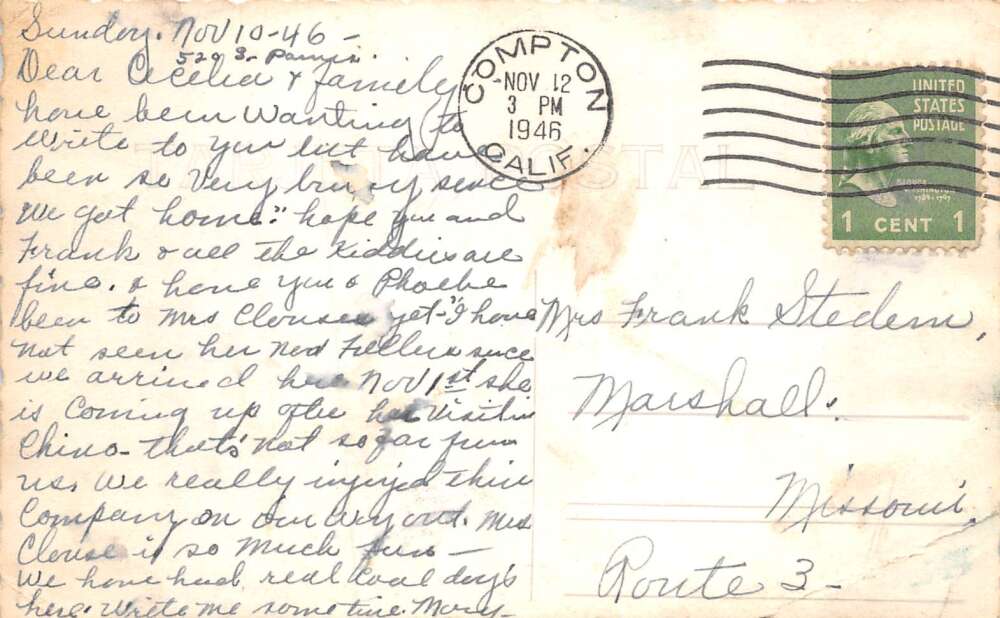 Sunday. Nov 10-46-
529 S.
Dear Cecelia & family
have been wanting to
write to you but have
been so very busy since
we got home." hope you and
Frank & all the Kiddies are
fine. & have you & Phoebe
been to Mrs Clouses yet-"I have
not seen her nor Fellers since
we arrived here Nov 1st she
is coming up after her visit in
Chino-that's not so far from
us. we really injoyed their
Company on our way out. Mrs
Clouse is so much fun-
We have had real cool day's
here. Write me sometime. Mary-
COMPTON
NOV 12
3 PM
1946
CALIF.
UNITED
STATES
POSTAGE
GEORGE
WASHINGTON
1789-1797
1 CENT 1
TARJETA POSTAL
Mrs Frank Stedem,
Marshall.
Missouri.
Route 3-